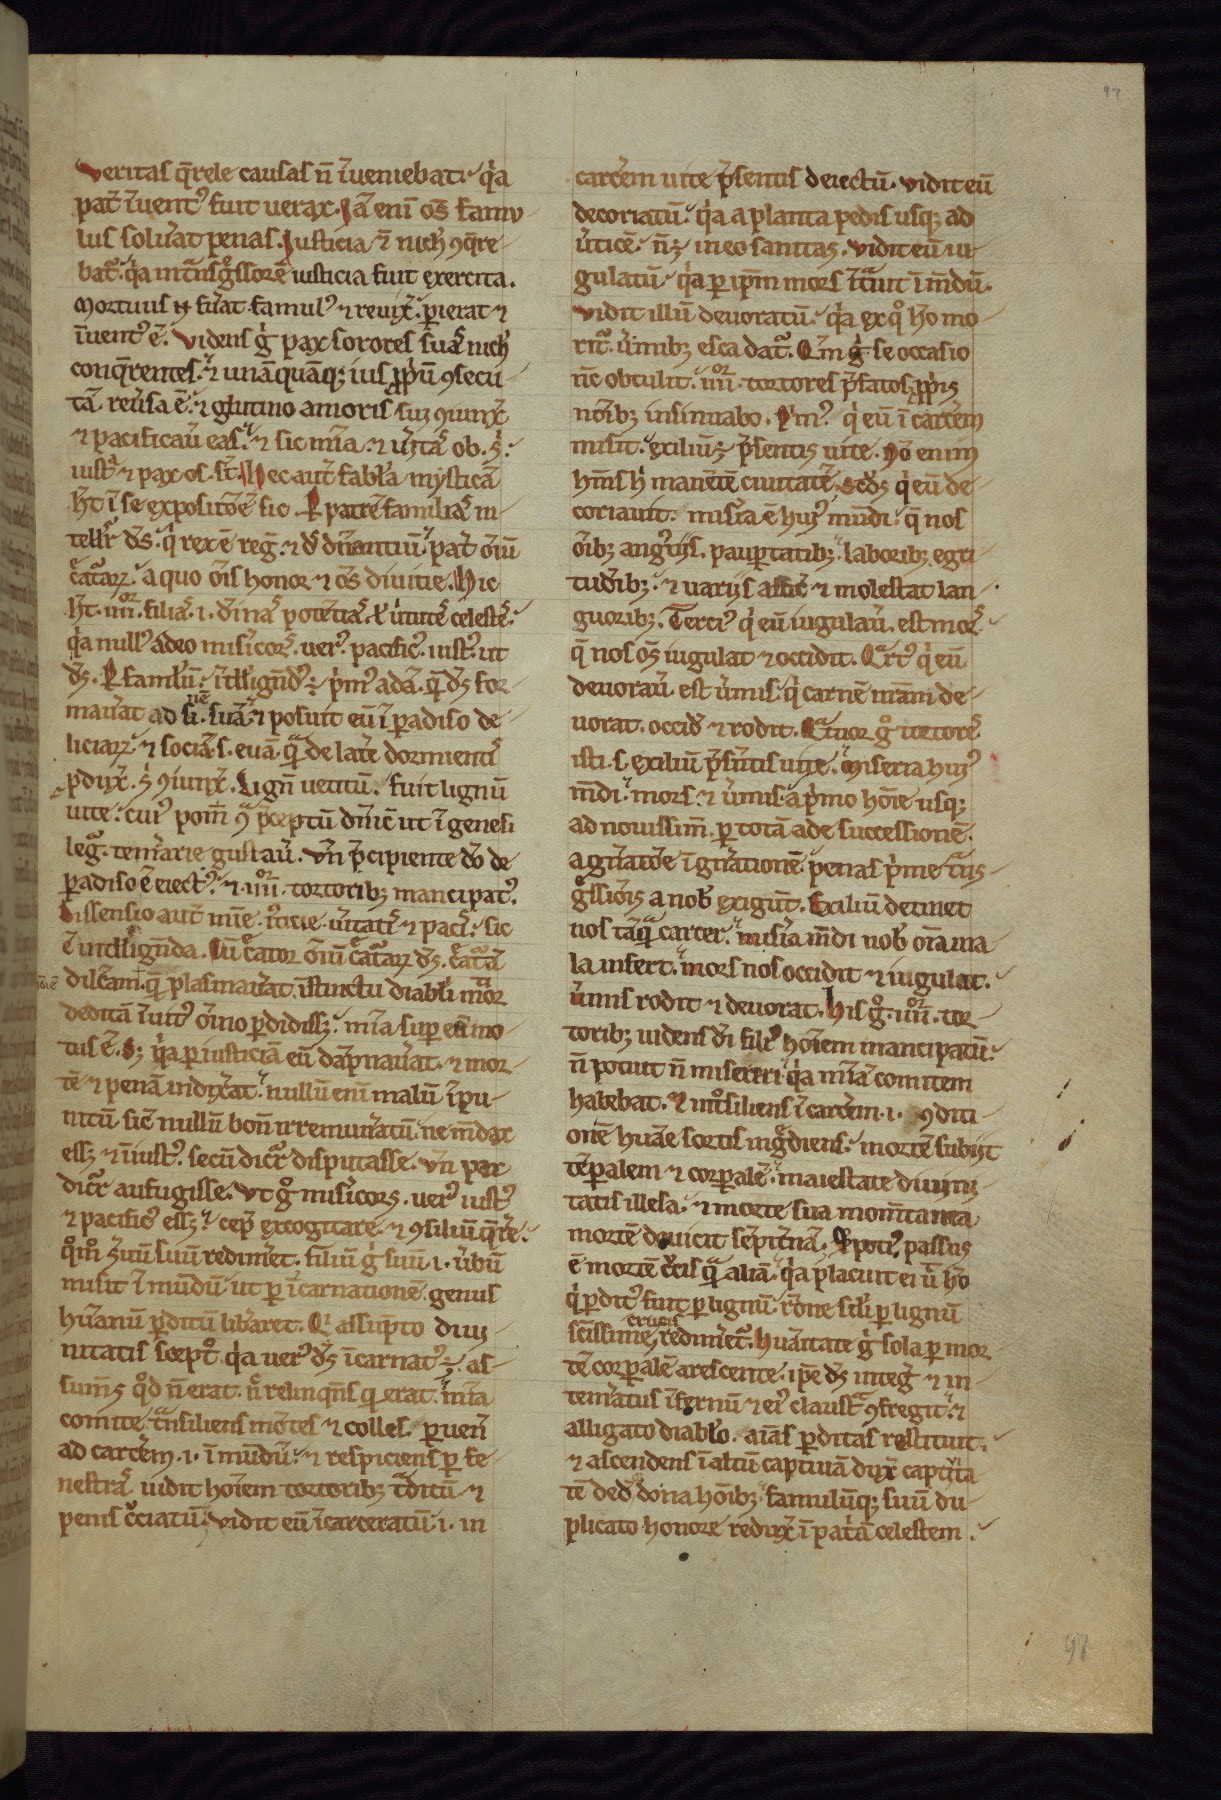 97
veritas q̄rele causas n̄ īueniebat. q̇a
pat̄ īuentꝰ fuit uerax. Ia eni os̄ famu-
lus soluat penas. Iusticia ē nich ꝯq̄re-
bat̄. q̇a int̄nsg̊ssorē iusticia fuit exercita.
Mortuus fuat famulꝰ ⁊ reuix̄. perierat ⁊
īuentꝰ ē. videns g̊ pax sorores suas nich
conq̄rentes. ⁊ unāquāq; ius ꝓpiū ꝯsecu-
tā reuersa ē. ⁊ glutino amoris sui ꝯiunx̄
⁊ pacificau eas. ⁊ sic mīa. ⁊ u̇itas ob. s.
iustꝰ ⁊ pax os. st̄. Hec aut̄ fabla mysticā
ht̄ ī se expositōem sic. P patrē familias in-
tellr̄ ds̄. q̇ rex ē reḡ. ⁊ dn̄s dn̄antiū. pat̄ oīū
c̄atarꝝ. a quo oīs honor ⁊ os̄ diuitie. Hic
ht̄. iiii. filias. i. diuinas potētias. l u̇tutes celestes.
q̇a nullꝰ adeo misicors. uerꝰ. pacificꝰ. iustꝰ. ut
ds̄. P famulū. ītelligndꝰ ÷ pimꝰ adā. quē ds̄ for-
mauat ad si. suā. ⁊ posuit eū ī paradiso de-
nē
liciarꝝ. ⁊ sociā. s. euā. qā de late dormientis
pdux̄. si ꝯiunx̄. Lignū uetitū. fuit lignū
uite. cuiꝰ pom̄ ꝯ p̄ceptū dn̄ic ut ī genesi
leg̊. tem̄arie gustau. vn̄ p̄cipiente dō de
paradiso ē eiectꝰ. ⁊. iiii. tortoribꝫ mancipatꝰ.
Dissensio aut̄ mīe. iusticie. u̇itatis ⁊ pacis. sic
ē intelligenda. Cū c̄ator oīū c̄atarꝝ ds̄. c̄atā
dilc̄am. quā plasmauat. īstinctu diabli morti
deditā īuitꝰ oīno p̄didissꝫ. mīa super eā mo-
tus ē. Sꝫ q̇a per iusticiā eū dāpnauat. ⁊ mor-
tē ⁊ penā indixat. nullū eni malū īpu-
nitū sic nullū bon̄ irremunatū. ne mēdax
essꝫ ⁊ īiustꝰ. secū dicr̄ disputasse. vn̄ pax
dicr̄ aufugisse. Vt g̊ misicors. uerꝰ iustꝰ
⁊ pacificꝰ essꝫ. cep̄ excogitare. ⁊ ꝯsiliū q̄rere.
qm̊ suū redimet. filiū g̊ suū. i. u̇bū
misit ī mūdū. ut per īcarnationē. genus
huānū perditū libaret. Qi assūpto diui-
nitatis scept̊. q̇a uerꝰ ds̄ īcarnatꝰ ÷. as-
sum̄s qd̊ n̄ erat. n̄ relinqns q erat. mīa
comite. t̄nsiliens mōtes ⁊ colles. peruen̄
ad carcēm. i. ī mūdū. ⁊ respiciens per fe-
nestras uidit hoīem tortoribꝫ t̄ditū. ⁊
penis c̄ciatū. vidit eū īcarceratū. i. in
carcēm uite p̄sentis deiectū. vidit eū
decoriatū. q̇a a planta pedis usq; ad
u̇ticē. n̄ ÷ in eo sanitas. vidit eū iu-
gulatū. q̇a per ip̄m mors īt̄uit ī mūdū.
vidit illū deuoratū. q̇a ex quo ho mo-
rit̄. u̇mibꝫ esca dat̄. Qm̄ g̊ se occasio
nc̄ obtulit. iiii. tortores p̄fatos ꝓpiis
noībꝫ insinuabo. Pimꝰ. q̇ eū ī carcēm
misit. exiliū ÷ p̄sentis uite. Nō enim
hēms h manētē ciuitatē. Scdꝰ. q̇ eū de-
coriauit. misīa ē huiꝰ mūdi. q̄ nos
oībꝫ angustiis. paupertatibꝫ. laboribꝫ. egri-
tudibꝫ. ⁊ uariis afficit ⁊ molestat lan-
guoribꝫ. Terciꝰ q̇ eū iugulau. est mors
q̄ nos os̄ iugulat ⁊ occidit. Qartꝰ q̇ eū
deuorau. est u̇mis. q̇ carnē nr̄am de-
uorat. occid̄ ⁊ rodit. Qatuor g̊ tortores
isti. s. exiliū p̄sentis uite. Miseria huiꝰ
mūdi. mors. ⁊ u̇mis. a pimo hoīe usq;
ad nouissim̄. per totā ade successionē.
a gn̄atōe ī gn̄ationē. penas pime t̄ns-
g̊ssiōis a nob exigunt. Exiliū detinet
nos tāqā carcer. misīa mūdi nob oīa ma-
la infert. mors nos occidit ⁊ iugulat.
u̇mis rodit ⁊ deuorat. His g̊. iiii. tor-
toribꝫ uidens di filiꝰ hoīem mancipatū.
n̄ potuit n̄ misereri. q̇a mīa comitem
habebat. ⁊ int̊siliens ī carcēm. i. ꝯditi-
onē huāne sortis ingrediens. mortē subiit
tēporalem ⁊ corporalē. maiestate diuini-
tatis illesa. ⁊ morte sua momētanea
mortē deuicit sēpitnā. Qi potiꝰ passus
ē mortē c̄cis qā aliā. q̇a placuit ei ut ho
q̇ perditꝰ fuit per lignū. rōne simili per lignū
crucis
scīssime redimet̄. Huānitate g̊ sola per mor-
tē corporalē arescente. ipe ds̄ inteḡ ⁊ in-
tematus īfernū ⁊ eiꝰ claustra ꝯfregit. ⁊
alligato diablo. aīas perditas restituit.
⁊ ascendens ī altū captiuā dux̄ captiuita-
tē ded̄ dona hoībꝫ. famulūq; suū du-
plicato honore redux̄ ī pat̄ā celestem.
97